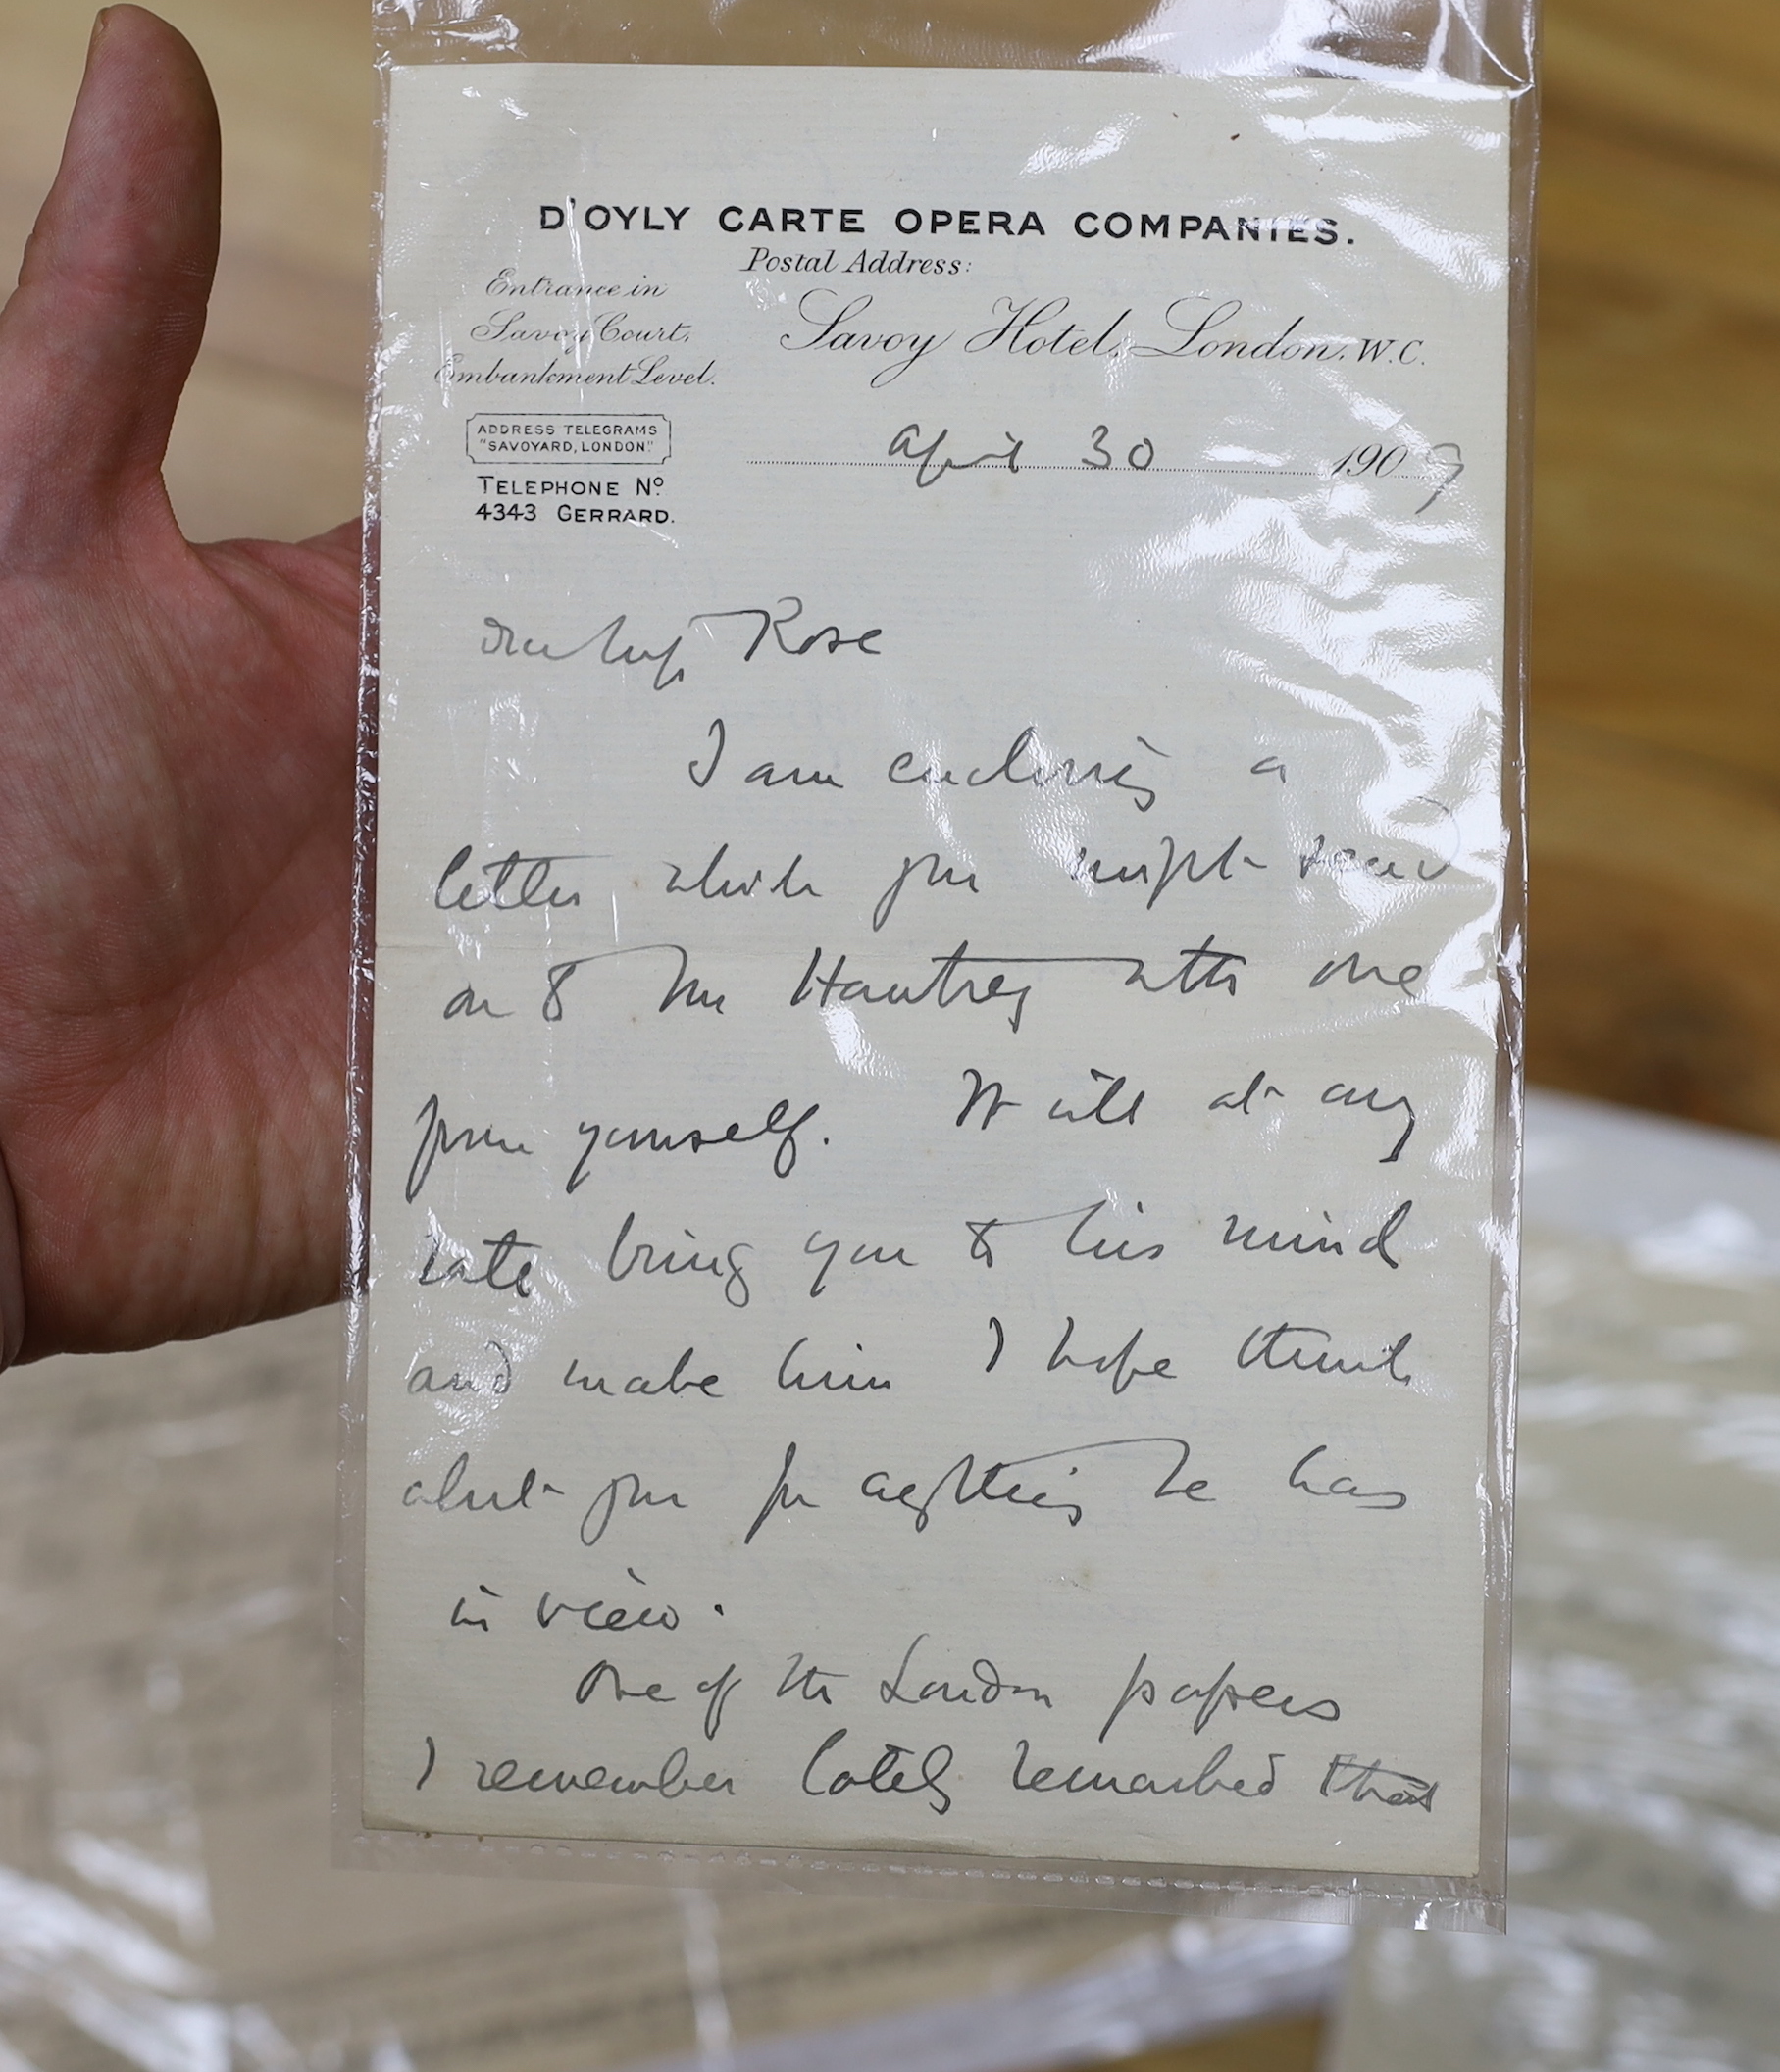 D'OYLY CARTE OPERA COMPANIES.
Postal Address:
Entrance in
Savoy Court,
Embankment Level.
Savoy Hotel, London. W.C.
ADDRESS TELEGRAMS
"SAVOYARD, LONDON."
TELEPHONE Nº
4343 GERRARD.
April 30 1909
Dear Miss Rose
I am enclosing a
letter which you might send
on to Mr Hawtrey with one
from yourself. It will at any
rate bring you to his mind
and make him I hope think
about you for anything he has
in view.
One of the London papers
I remember lately remarked that